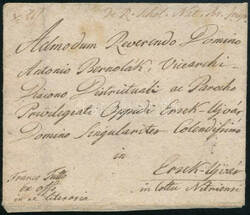 Admodum Reverendo Domino
Antonio Bernolák, Vicearchi-
Diacono Districtuali ac Parocho
Privilegiati Oppidi Ersek-Ujvár
Domino Singulariter Colendissimo
in
Ersek-Ujvár
in Cottu Nitriensi
Franco
ex offo
in re literaria